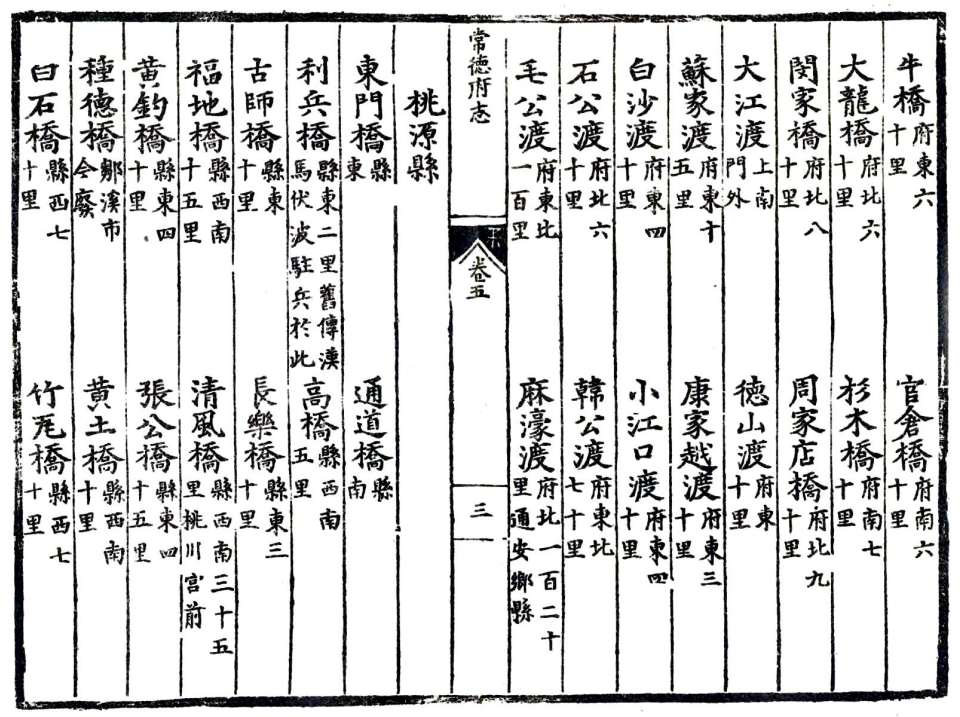 牛橋府東六十里 官倉橋府南六十里
大龍橋府北六十里 杉木橋府南七十里
閔家橋府北八十里 周家店橋府北九十里
大江渡上南門外 德山渡府東十里
蘇家渡府東十五里 康家越渡府東三十里
白沙渡府東四十里 小江口渡府東四十里
石公渡府北六十里 韓公渡府東北七十里
毛公渡府東北一百里 麻濠渡府北一百二十里通安鄉縣
常德府志 卷五 三
桃源縣
東門橋縣東 通道橋縣南
利兵橋縣東二里舊傳漢馬伏波駐兵於此 高橋縣西南五里
古師橋縣東十里 長樂橋縣東三十里
福地橋縣西南十五里 清風橋縣西南三十五里桃川宮前
黃釣橋縣東四十里 張公橋縣東四十五里
種德橋鄒溪市今廢 黃土橋縣西南十里
白石橋縣西七十里 竹瓦橋縣西七十里